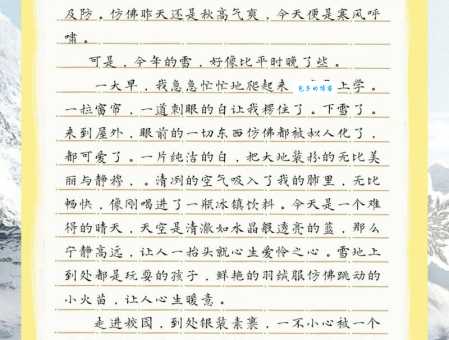 及防。仿佛昨天还是秋高气爽，今天便是寒风呼
啸。
可是，今年的雪，好像比平时晚了些。
一大早，我急急忙忙地爬起来 上学。
一拉窗帘，一道刺眼的白让我愣住了。下雪了。
来到屋外，眼前的一切东西仿佛都被拟人化了，
都可爱了。一片纯洁的白，把大地装扮的无比美
丽与静穆，。清冽的空气吸入了我的肺里，无比
畅快，像刚喝进了一瓶冰镇饮料。今天是一个难
得的晴天，天空是清澈如水晶般透亮的蓝，那么
宁静高远，让人一抬头就心生爱怜之心。雪地上
到处都是玩耍的孩子，鲜艳的羽绒服仿佛跳动的
小火苗，让人心生暖意。
走进校园，到处银装素裹，一不小心被一个